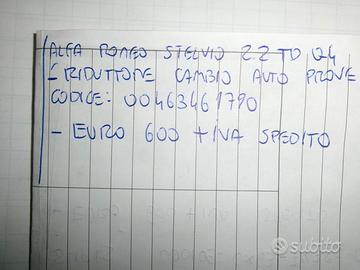 ALFA ROMEO STELVIO 2.2 TD Q4
RIDUTTORE CAMBIO AUTO PROVE
CODICE: 00463461790
- EURO 600 + IVA SPEDITO
subito